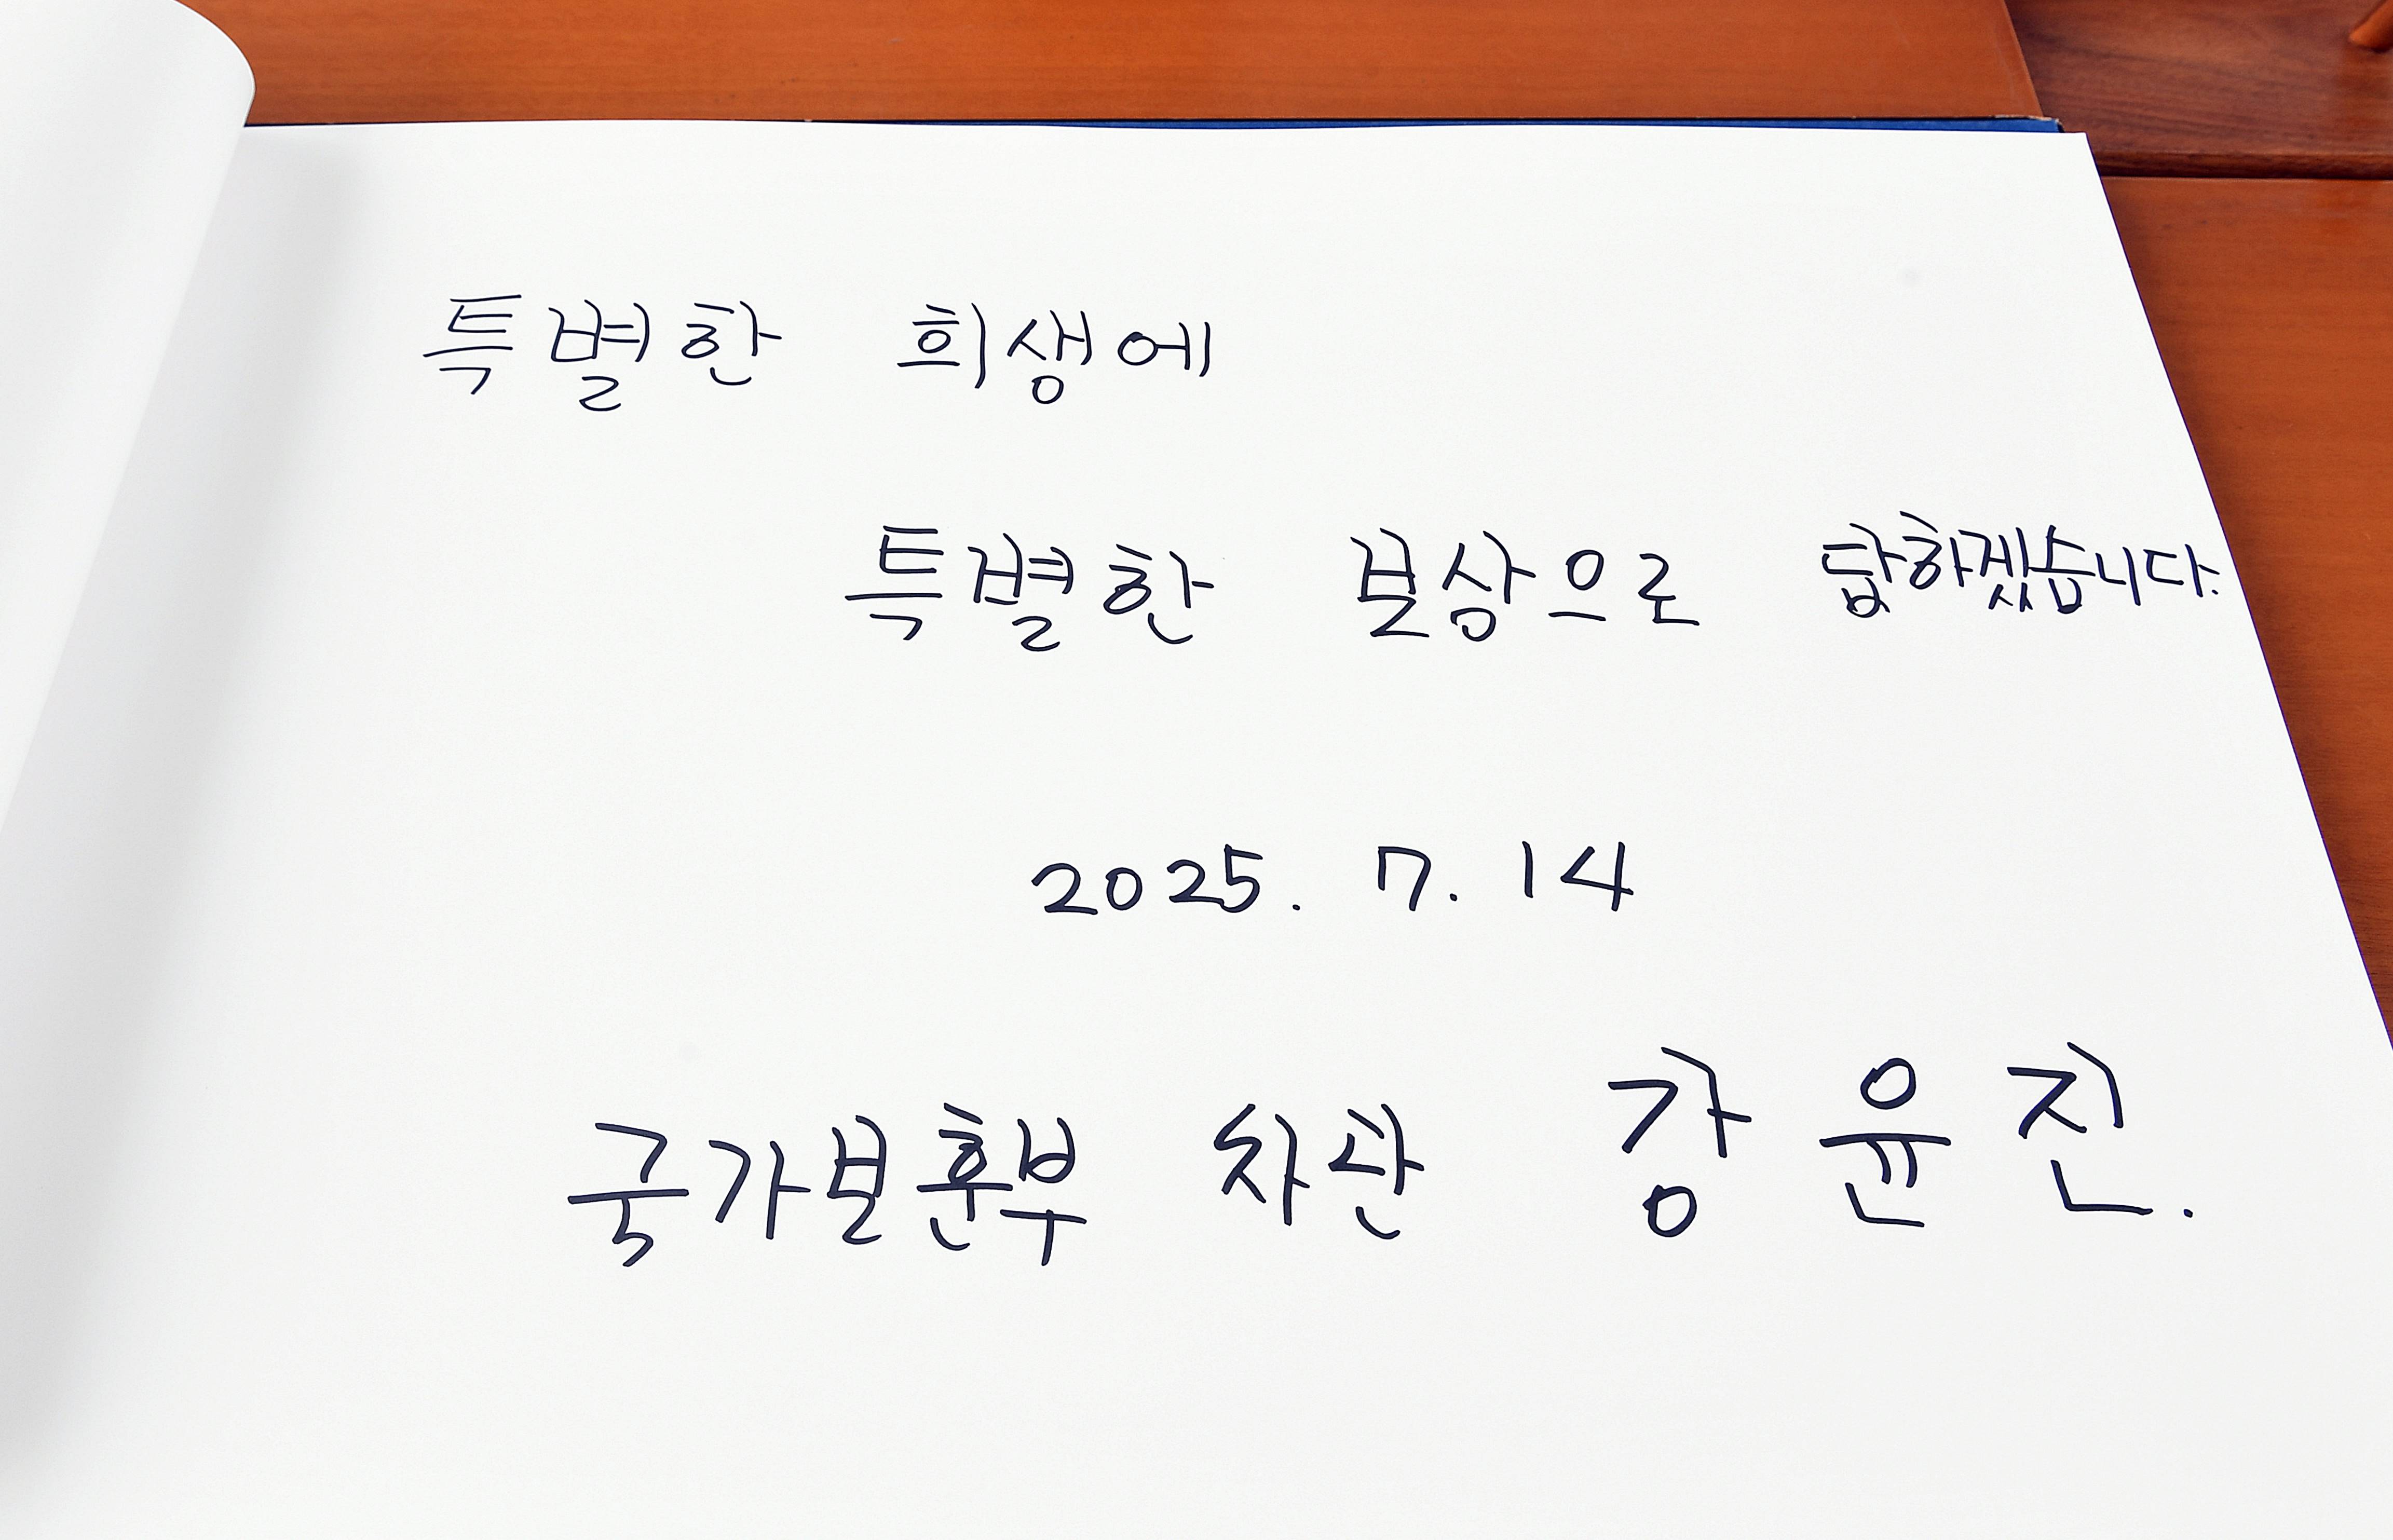 특별한 희생에
특별한 보상으로 답하겠습니다.
2025. 7. 14
국가보훈부 차관 강윤진.